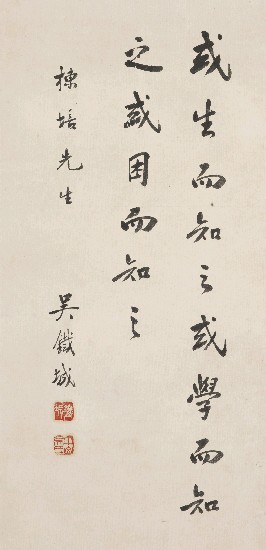 或生而知之或學而知
之或困而知之
棟培先生
吳鐵城